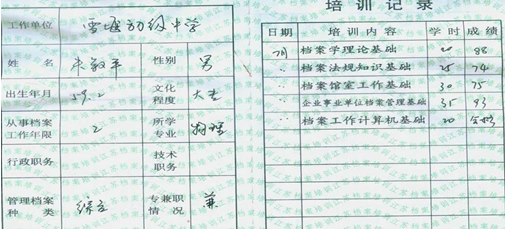 工作单位 雪堰初级中学
姓名 朱敏平 性别 男
出生年月 59.2 文化程度 大专
从事档案工作年限 2 所学专业 物理
行政职务 技术职务
管理档案种类 综合 专兼职情况 兼
培训记录
日期 培训内容 学时 成绩
7月 档案学理论基础 20 88
〃 档案法规知识基础 25 74
〃 档案馆室工作基础 30 75
〃 企业事业单位档案管理基础 35 93
〃 档案工作计算机基础 20 合格